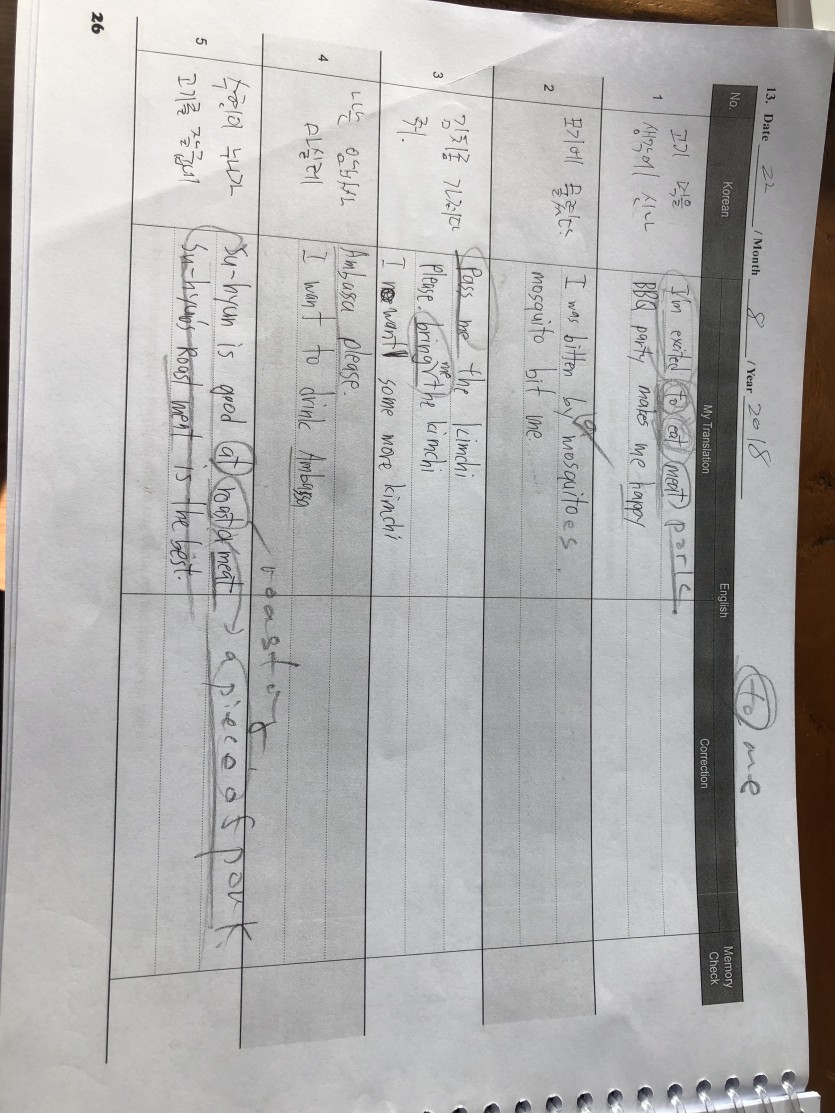 13. Date 22 / Month 8 / Year 2018
to me
No. Korean My Translation English Correction Memory Check
1 고기 먹을 생각에 신나
I'm excited to eat meat pork.
BBQ party makes me happy
2 모기에 물렸다.
I was bitten by a mosquitoes.
mosquito bit me
3 김치좀 가져다 줘.
Pass me the kimchi
Please. bring me the kimchi
I want some more kimchi
4 나는 암바사 마실래
Ambasa please.
I want to drink Ambassa
roasting
5 수현이 누나가 고기를 잘굽네
Su-hyun is good at roast a meat a piece of pork
Su-hyun's Roast meat is the best.
26